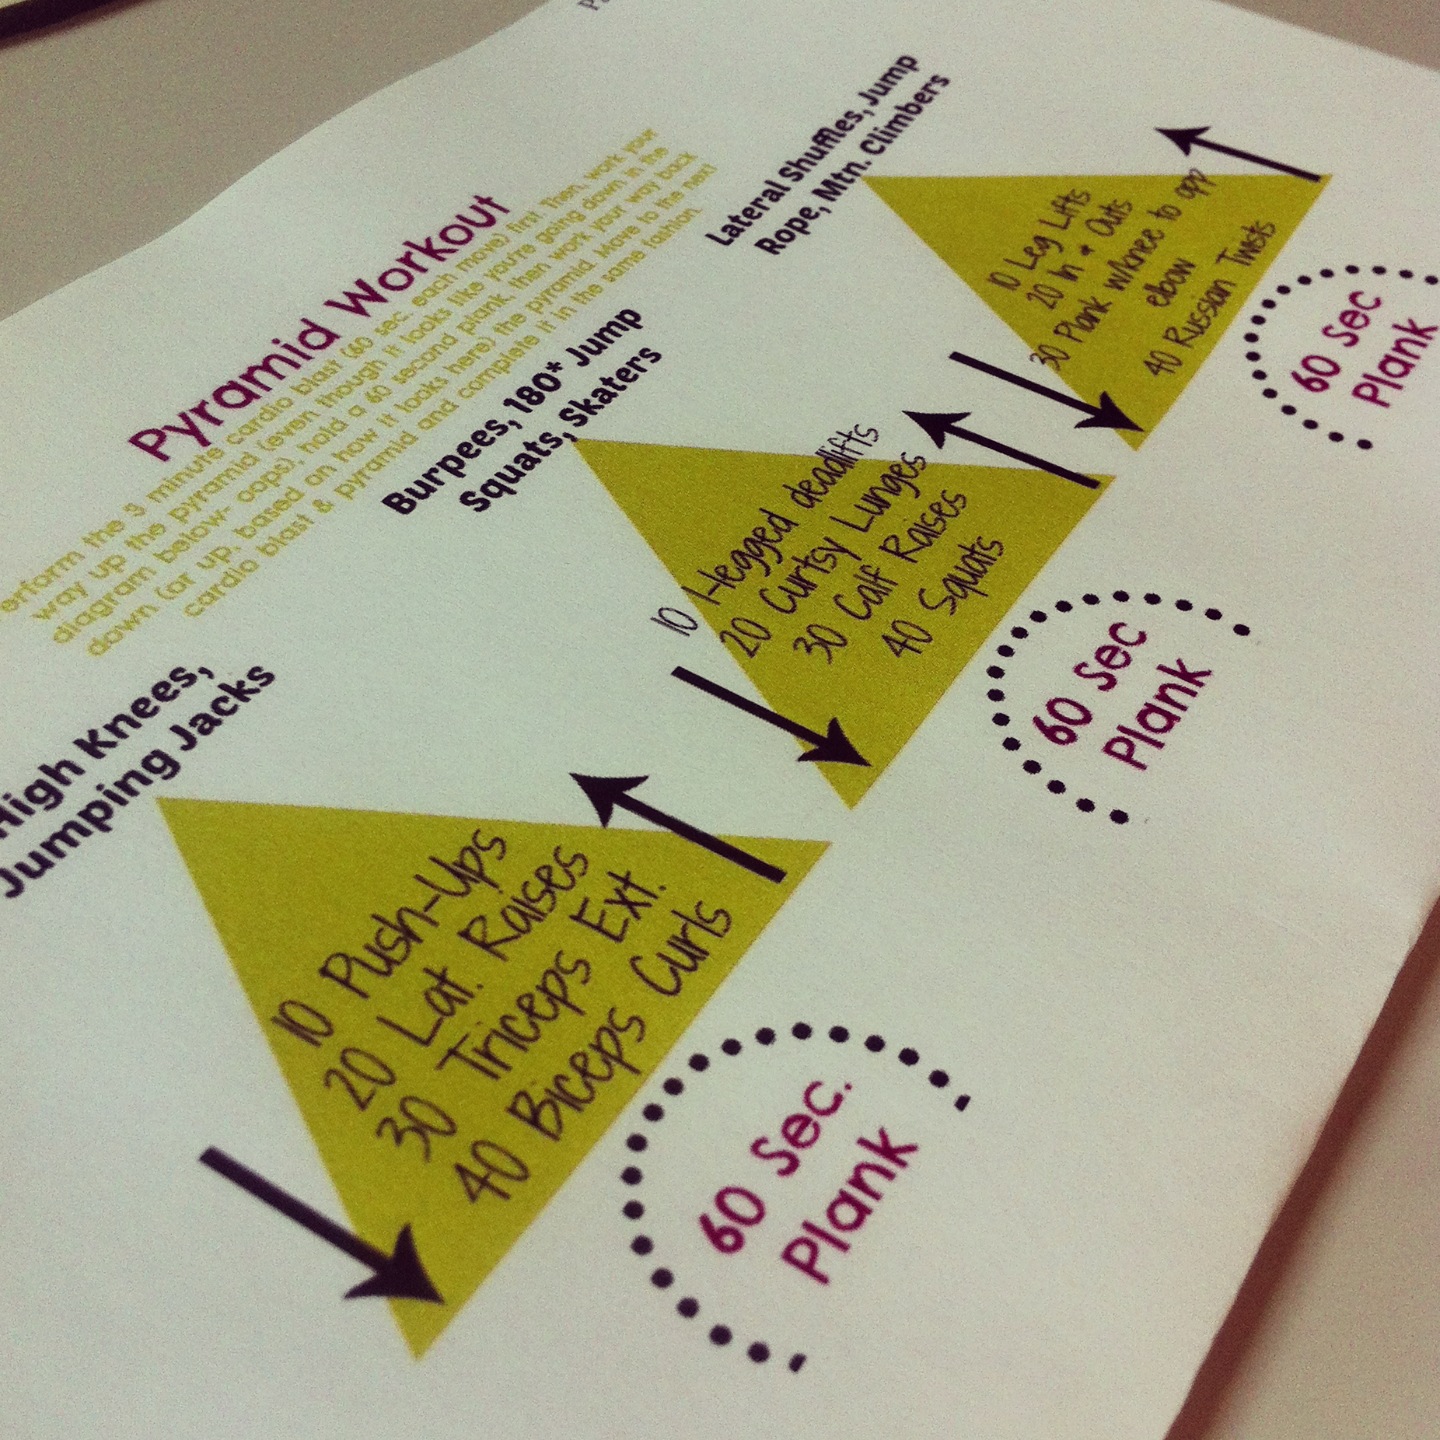 Pyramid Workout
erform the 3 minute cardio blast (60 sec. each move) first. Then, work your
way up the pyramid (even though it looks like you're going down in the
diagram below- oops), hold a 60 second plank, then work your way back
down (or up, based on how it looks here) the pyramid. Move to the next
cardio blast & pyramid and complete it in the same fashion.
High Knees,
Jumping Jacks
10 Push-Ups
20 Lat. Raises
30 Triceps Ext.
40 Biceps Curls
60 Sec.
Plank
Burpees, 180* Jump
Squats, Skaters
10 1-legged deadlifts
20 Curtsy Lunges
30 Calf Raises
40 Squats
60 Sec
Plank
Lateral Shuffles, Jump
Rope, Mtn. Climbers
10 Leg Lifts
20 In & Outs
30 Plank w/knee to opp
elbow
40 Russian Twists
60 Sec
Plank